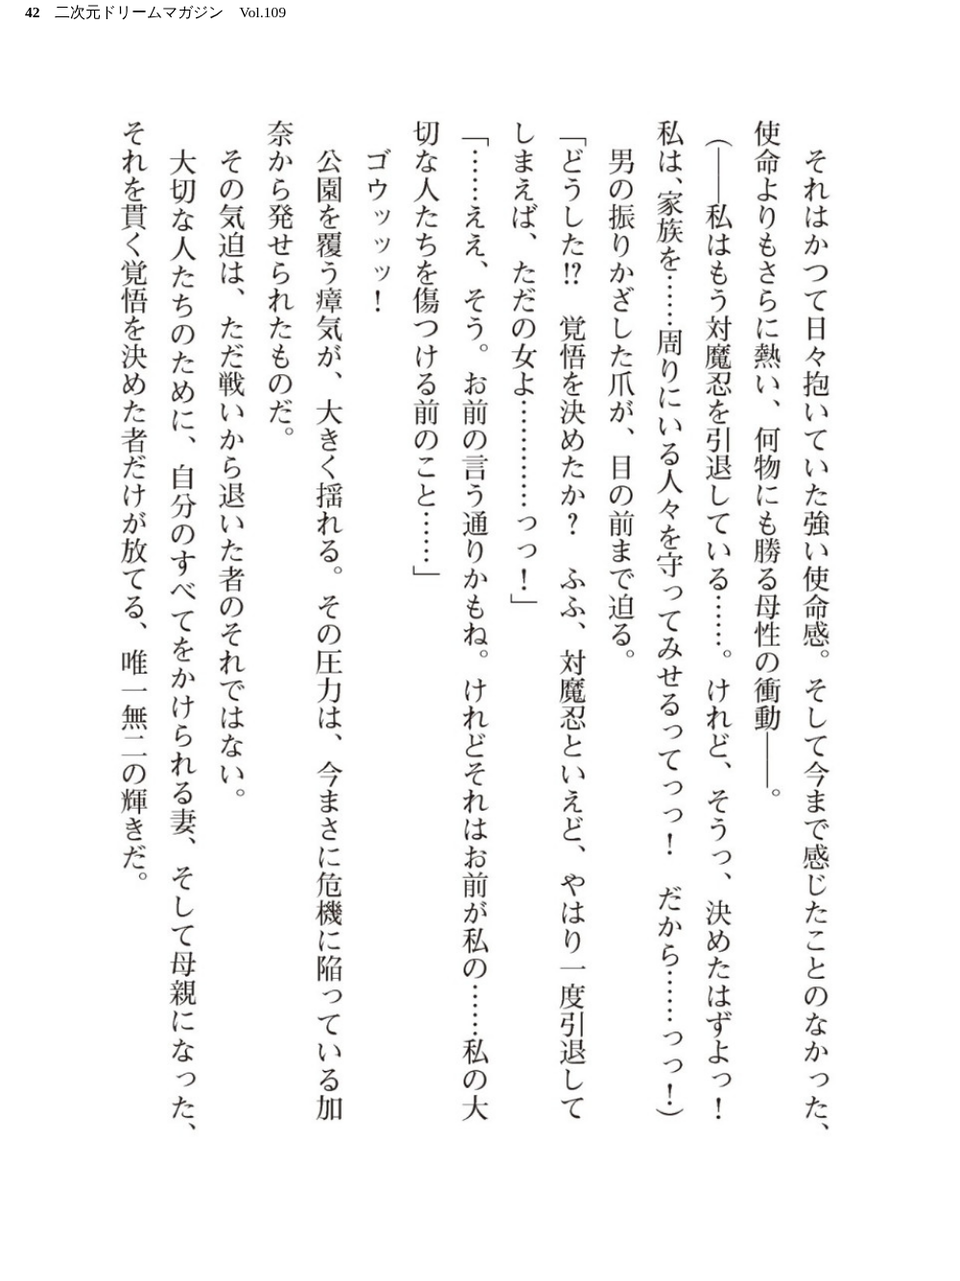 42 二次元ドリームマガジン Vol.109
　それはかつて日々抱いていた強い使命感。そして今まで感じたことのなかった、
使命よりもさらに熱い、何物にも勝る母性の衝動――。
（――私はもう対魔忍を引退している……。けれど、そうっ、決めたはずよっ！
私は、家族を……周りにいる人々を守ってみせるってっっ！　だから……っっ！）
　男の振りかざした爪が、目の前まで迫る。
「どうした!?　覚悟を決めたか？　ふふ、対魔忍といえど、やはり一度引退して
しまえば、ただの女よ…………っっ！」
「……ええ、そう。お前の言う通りかもね。けれどそれはお前が私の……私の大
切な人たちを傷つける前のこと……」
　ゴウッッッ！
　公園を覆う瘴気が、大きく揺れる。その圧力は、今まさに危機に陥っている加
奈から発せられたものだ。
　その気迫は、ただ戦いから退いた者のそれではない。
　大切な人たちのために、自分のすべてをかけられる妻、そして母親になった、
それを貫く覚悟を決めた者だけが放てる、唯一無二の輝きだ。